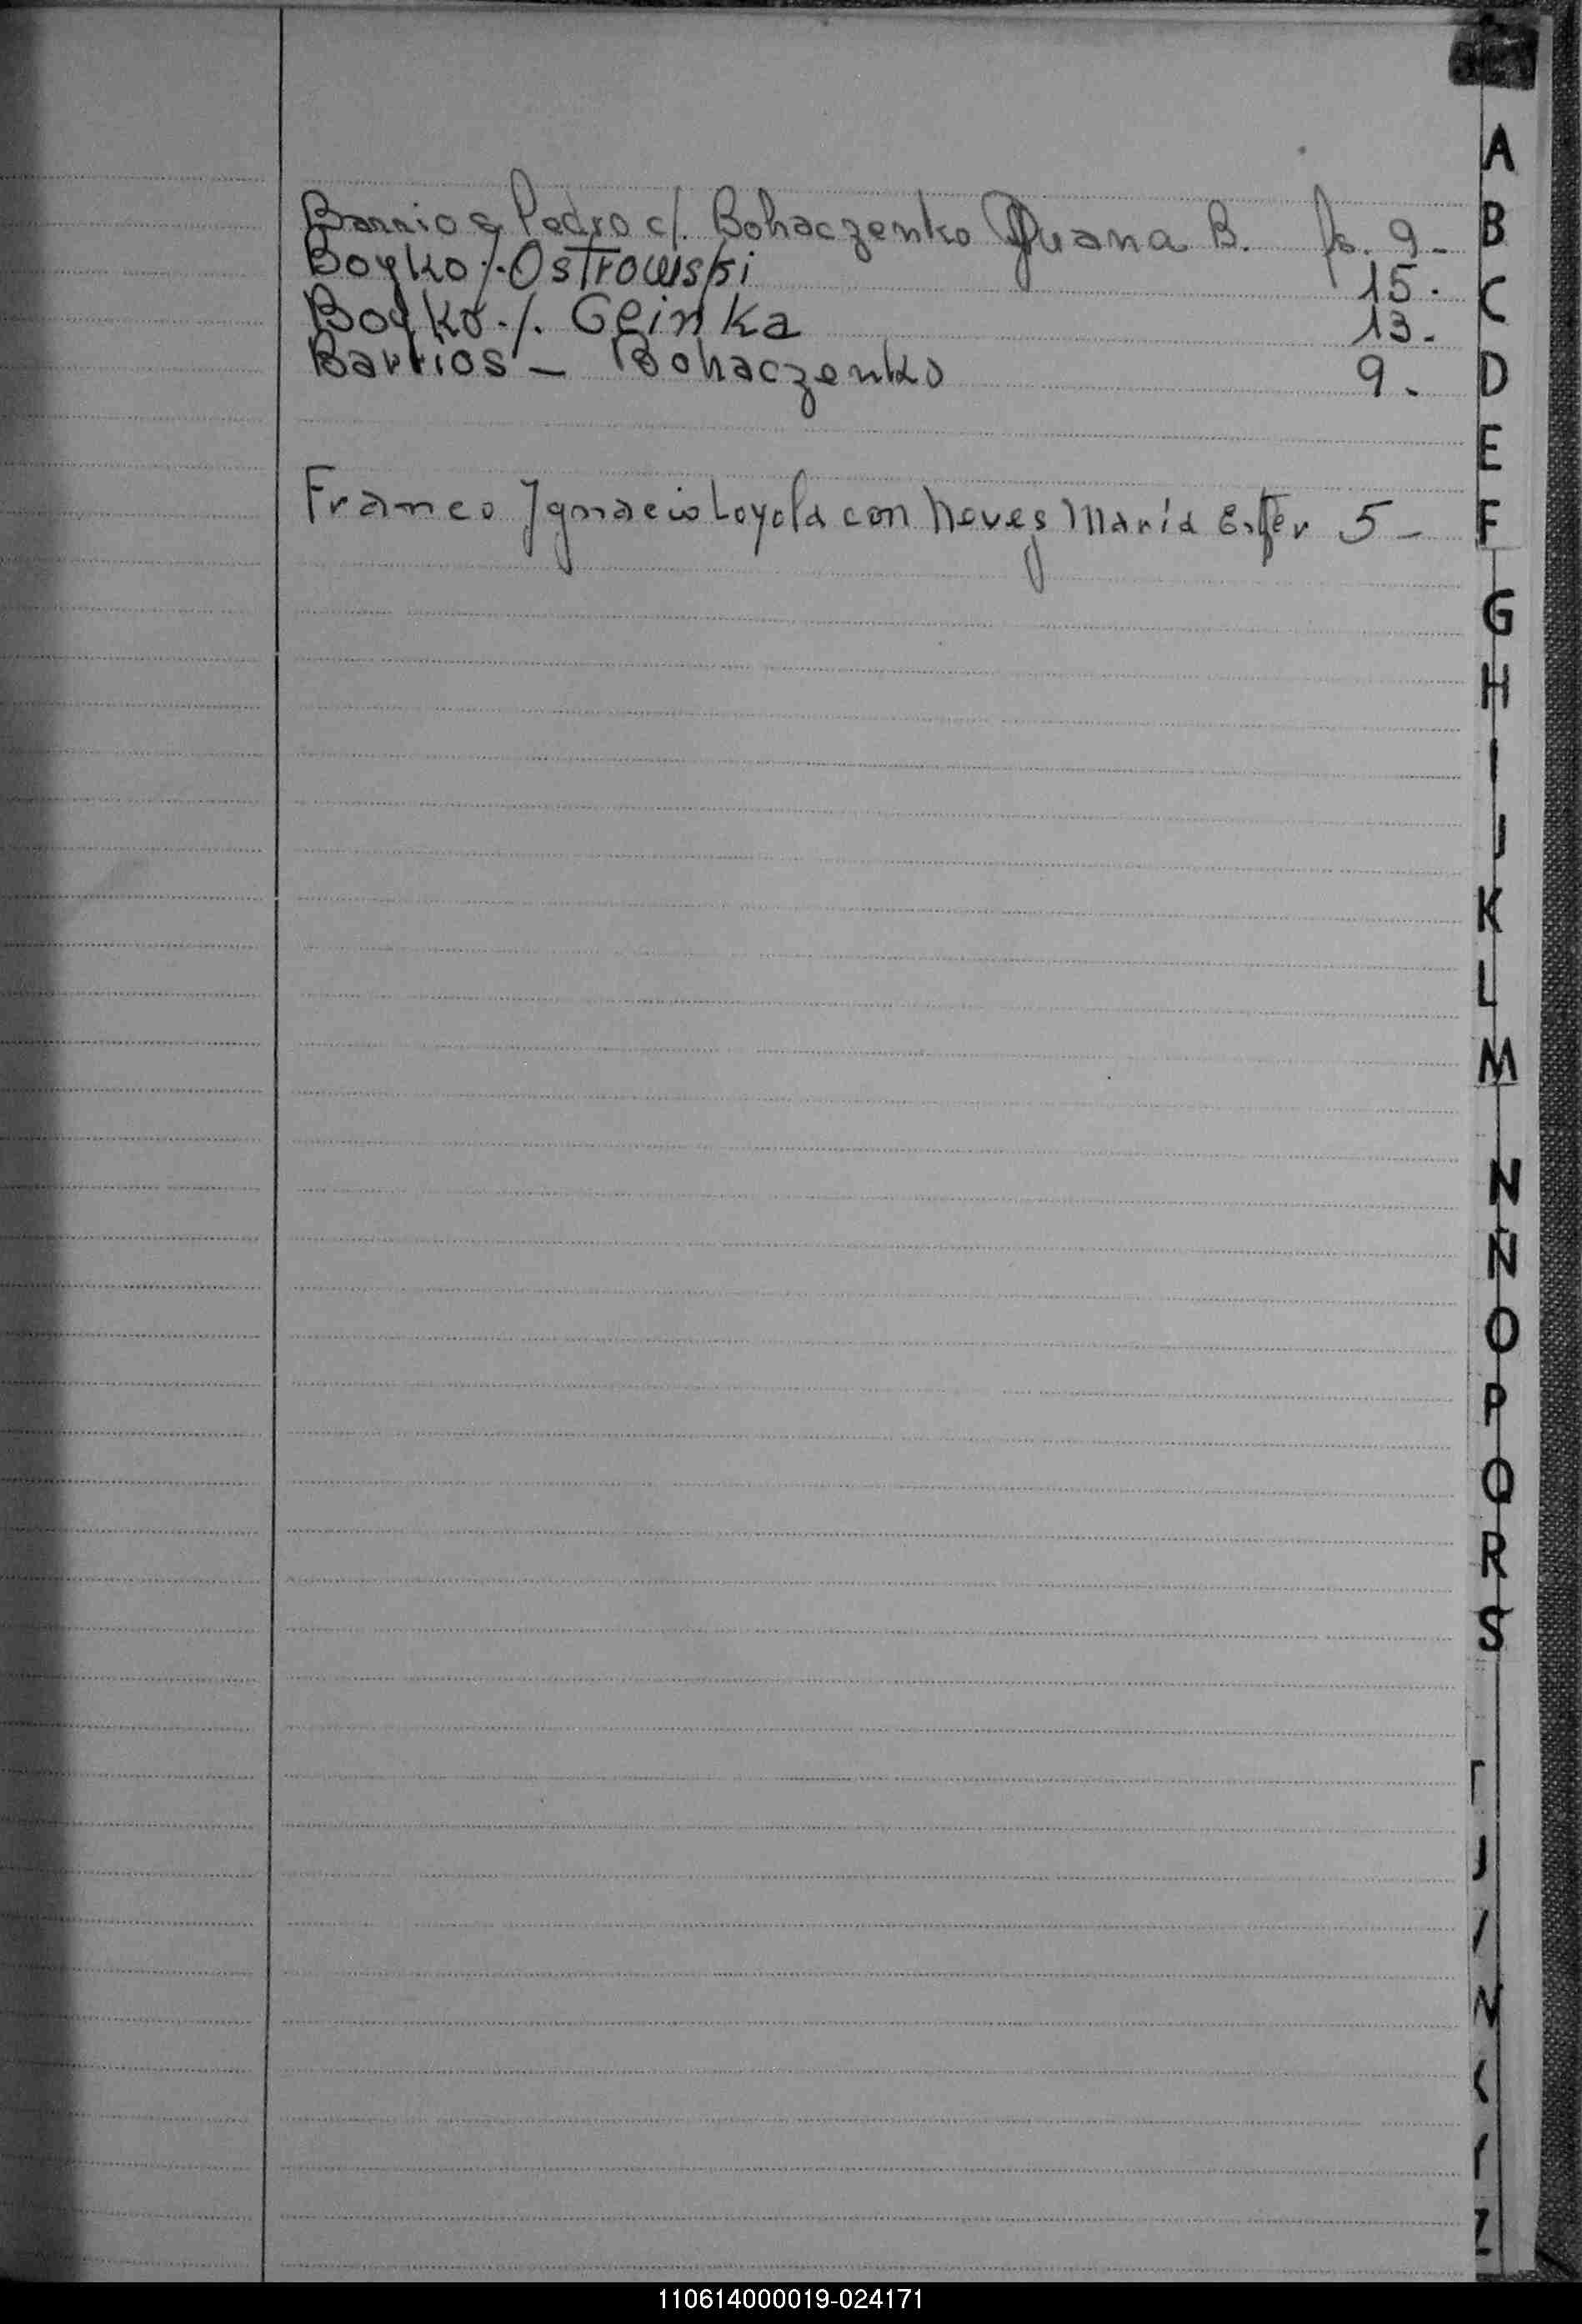 Barrios Pedro c/. Bohaczenko Juana B. fs. 9-
Boyko ./. Ostrowski 15.
Boyko ./. Geinka 13.
Barrios - Bohaczenko 9.
Franco Ygnacio Loyola con Neves María Ester 5-
A
B
C
D
E
F
G
H
I
J
K
L
M
N
N
O
P
Q
R
S
Z
110614000019-024171